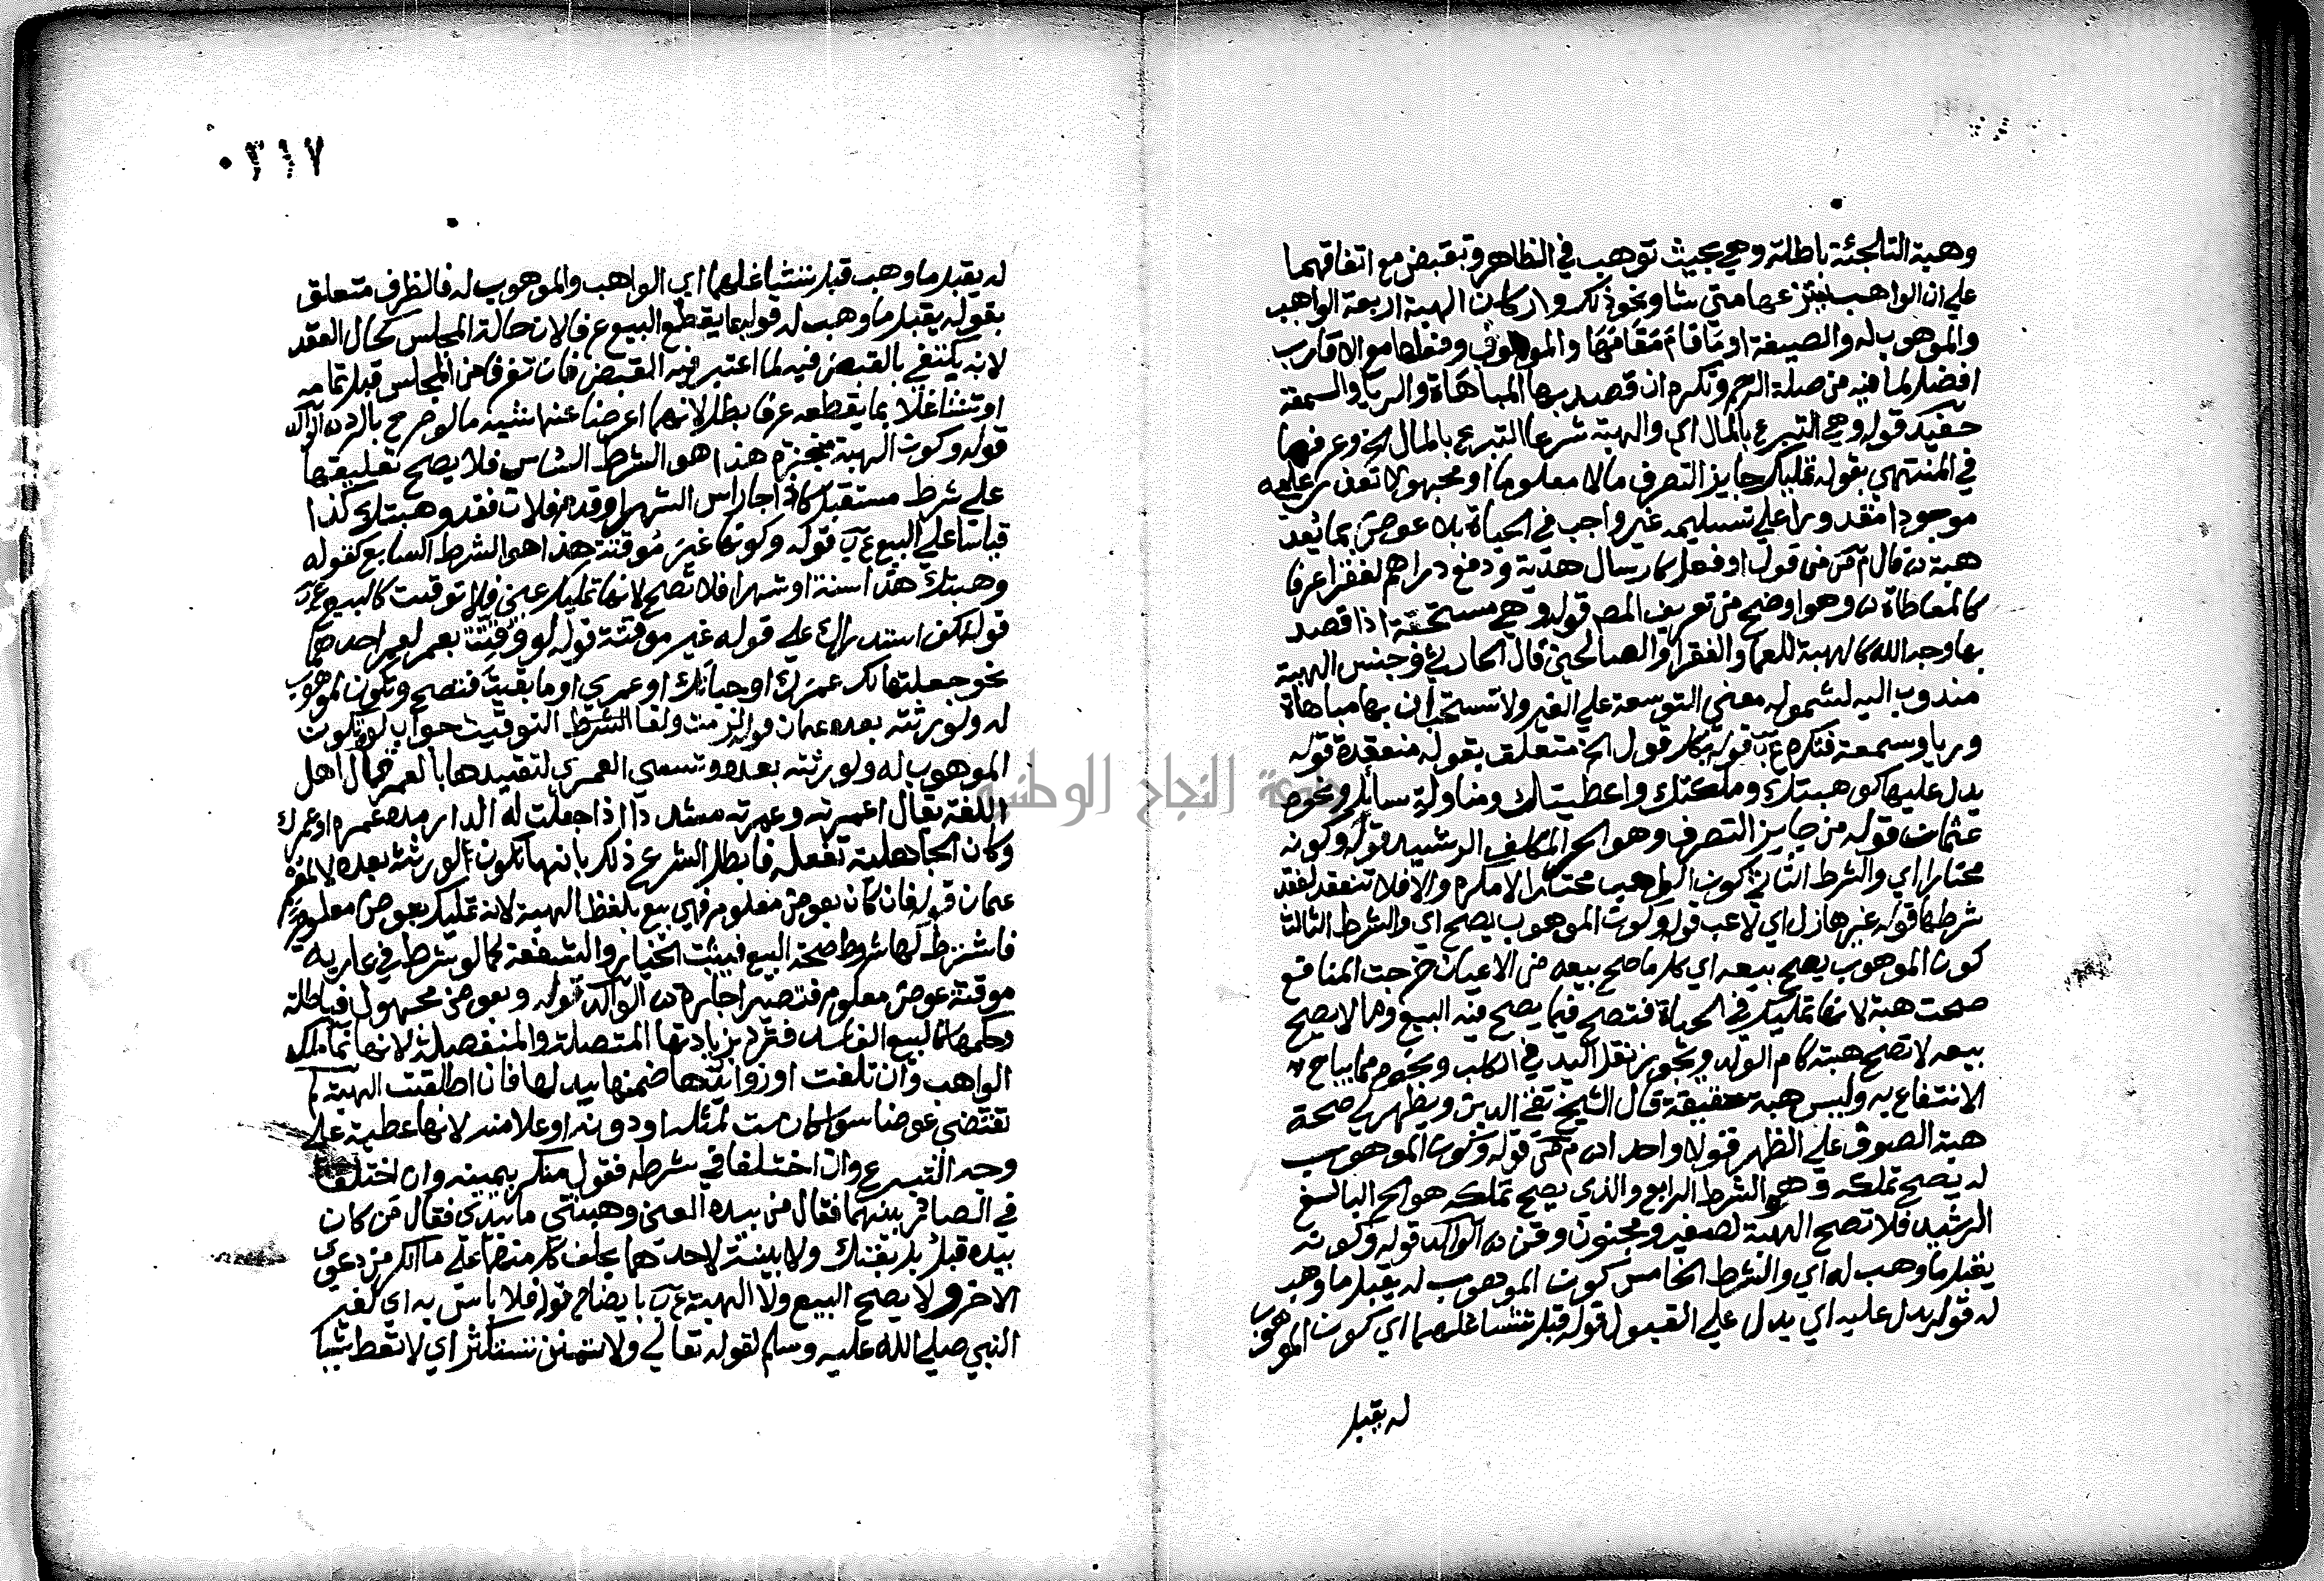 وهبة التلجئة باطلة وهي بحيث توهب في الظاهر وتقبض مع اتفاقهما
على ان الواهب ينزعها متى شا ونحو ذلك واركان الهبة اربعة الواهب
والموهوب له والصيغة او ما قام مقامها والموهوب وفعلها مع الاقارب
افضل لما فيه من صلة الرحم وتكره ان قصد بها المباهاة والريا والسمعة
حفيد قوله وهي التبرع بالمال اي والهبة شرعا التبرع بالمال الخ وعرفها
في المنتهى بقوله تمليك جايز التصرف مالا معلوما او مجهولا تعذر علمه
موجودا مقدورا على تسليمه غير واجب في الحياة بلا عوض بما يعد
هبة قال م ص من قول او فعل كارسال هدية ودفع دراهم لفقرا عرفا
كالمعاطاة وهو اوضح من تعريف المص قوله وهي مستحبة اذا قصد
بها وجه الله كالهبة للعلما والفقرا والصالحين قال الحارثي وجنس الهبة
مندوب اليه لشموله معنى التوسعة على الغير ولا تستحب ان بها مباهاة
وريا وسمعة فتكره ع ب قوله بكل قول الخ متعلق بقوله منعقدة قوله
يدل عليها كوهبتك وملكتك واعطيتك ومناولة سائل ونحوه
عثمان قوله من جايز التصرف وهو الحر المكلف الرشيد قوله وكونه
مختارا اي والشرط الثاني كون الواهب مختارا لا مكره والا فلا تنعقد لفقد
شرطها قوله غير هازل اي لاعب قوله وكون الموهوب يصح اي والشرط الثالث
كون الموهوب يصح بيعه اي كل ما صح بيعه من الاعيان خرجت المنافع
صحت هبة لانها تمليك في الحياة فتصح فيما يصح فيه البيع وما لا يصح
بيعه لا تصح هبته كام الولد ويجوز نقل اليد في الكلب ونحوه مما يباح
الانتفاع به وليس هبة حقيقة قال الشيخ تقي الدين ويظهر لي صحة
هبة الصوف على الظهر قولا واحدا م ص قوله وكون الموهوب
له يصح تملكه وهو الشرط الرابع والذي يصح تملكه هو الحر البالغ
الرشيد فلا تصح الهبة لصغير ومجنون وقن الوالد قوله وكونه
يقبل ما وهب له اي والشرط الخامس كون الموهوب له يقبل ما وهب
له قوله يدل عليه اي يدل على القبول قوله قبل تشاغلهما اي كون الموهوب
له يقبل
٠٣١٧
له يقبل ما وهب قبل تشاغلهما اي الواهب والموهوب له فالظرف متعلق
بقوله يقبل ما وهب له قوله بما يقطع البيع عرفا لان حالة المجلس كحال العقد
لانه يكتفي بالقبض فيه لما اعتبر فيه القبض فان تفرقا من المجلس قبل تمامه
او تشاغلا بما يقطعه عرفا بطل لانهما اعرضا عنه اشبه ما لو صرح بالرد الوالد
قوله وكون الهبة منجزة هذا هو الشرط السادس فلا يصح تعليقها
على شرط مستقبل كاذا جا راس الشهر او قدم فلان فقد وهبتك كذا
قياسا على البيع ع ب قوله وكونها غير موقتة هذا هو الشرط السابع كقوله
وهبتك هذا سنة او شهرا فلا تصح لانها تمليك عين فلا توقت كالبيع ع ب
قوله لكن استدراك على قوله غير موقتة قوله لو وقتت بعمر لعمر احدهما
نحو جعلتها لك عمرك او حياتك او عمري او ما بقيت فتصح وتكون لموهوب
له ولورثته بعده عثمان قوله لزمت ولغا الشرط التوقيت جواب لو وتكون
الموهوب له ولورثته بعده وتسمى العمرى لتقييدها بالعمر قال اهل
اللغة يقال اعمرته وعمرته مشددا اذا جعلت له الدار مدة عمره او عمرك
وكان الجاهلية تفعله فابطل الشرع ذلك بانها تكون لورثته بعده لا للمعمر
عثمان قوله فان كان بعوض معلوم فهي بيع بلفظ الهبة لانه تمليك بعوض معلوم
فاشترط لها شروط صحة البيع فيثبت الخيار والشفعة كما لو شرط في عارية
موقتة عوض معلوم فتصير اجارة الوالد قوله وبعوض مجهول فباطلة
وحكمها كالبيع الفاسد فترد بزيادتها المتصلة والمنفصلة لانها نما ملك
الواهب وان تلفت او زوائدها ضمنها ببدلها فان اطلقت الهبة لم
تقتضي عوضا سوا كانت لمثله او دونه او اعلا منه لانها عطية على
وجه التبرع وان اختلفا في شرطه فقول منكر بيمينه وان اختلفا
في الصادر بينهما فقال من بيده العين وهبتني ما بيدي فقال من كان
بيده قبل بل بعتك ولا بينة لاحدهما يحلف كل منهما على ما انكر من دعوى
الاخر ولا يصح البيع ولا الهبة ع ب بايضاح قوله فلا باس به اي لغير
النبي صلى الله عليه وسلم لقوله تعالى ولا تمنن تستكثر اي لا تعط شيا